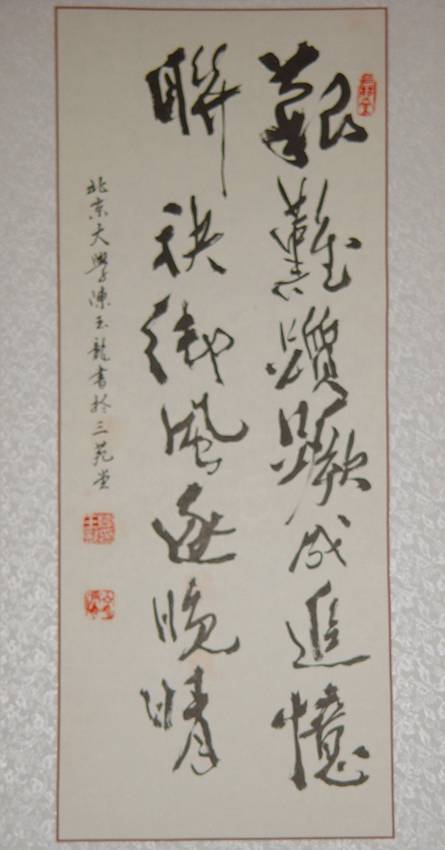 艱難躓蹶成追憶
聯袂御風逐晚晴
北京大學陳玉龍書於三苑堂